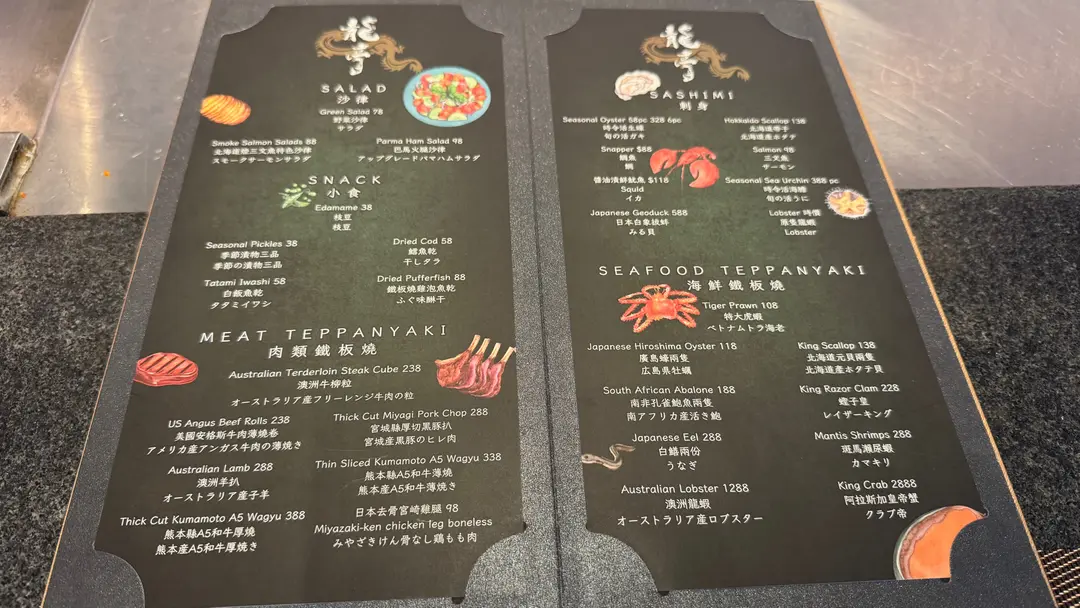 龍亭
SALAD
沙律
Green Salad 98
野菜沙律
サラダ
Smoke Salmon Salads 88
北海道煙三文魚特色沙律
スモークサーモンサラダ
Parma Ham Salad 98
巴馬火腿沙律
アップグレードパマハムサラダ
SNACK
小食
Edamame 38
枝豆
枝豆
Seasonal Pickles 38
季節漬物三品
季節の漬物三品
Dried Cod 58
鱈魚乾
干しタラ
Tatami Iwashi 58
白飯魚乾
タタミイワシ
Dried Pufferfish 88
鐵板燒雞泡魚乾
ふぐ味醂干
MEAT TEPPANYAKI
肉類鐵板燒
Australian Terderloin Steak Cube 238
澳洲牛柳粒
オーストラリア産フリーレンジ牛肉の粒
US Angus Beef Rolls 238
美國安格斯牛肉薄燒卷
アメリカ産アンガス牛肉の薄焼き
Thick Cut Miyagi Pork Chop 288
宮城縣厚切黑豚扒
宮城産黒豚のヒレ肉
Australian Lamb 288
澳洲羊扒
オーストラリア産子羊
Thin Sliced Kumamoto A5 Wagyu 338
熊本縣A5和牛薄燒
熊本産A5和牛薄焼き
Thick Cut Kumamoto A5 Wagyu 388
熊本縣A5和牛厚燒
熊本産A5和牛厚焼き
日本去骨宮崎雞腿 98
Miyazaki-ken chicken leg boneless
みやざきけん骨なし鶏もも肉
龍亭
SASHIMI
刺身
Seasonal Oyster 58pc 328 6pc
時令活生蠔
旬の活ガキ
Hokkaido Scallop 138
北海道帶子
北海道産ホタテ
Snapper $88
鯛魚
鯛
Salmon 98
三文魚
サーモン
醬油漬鮮魷魚 $118
Squid
イカ
Seasonal Sea Urchin 388 pc
時令活海膽
旬の活うに
Japanese Geoduck 588
日本白象拔蚌
みる貝
Lobster 時價
原隻龍蝦
Lobster
SEAFOOD TEPPANYAKI
海鮮鐵板燒
Tiger Prawn 108
特大虎蝦
ベトナムトラ海老
Japanese Hiroshima Oyster 118
廣島蠔兩隻
広島県牡蠣
King Scallop 138
北海道元貝兩隻
北海道産ホタテ貝
South African Abalone 188
南非孔雀鮑魚兩隻
南アフリカ産活き鮑
King Razor Clam 228
蟶子皇
レイザーキング
Japanese Eel 288
白鱔兩份
うなぎ
Mantis Shrimps 288
斑馬瀨尿蝦
カマキリ
Australian Lobster 1288
澳洲龍蝦
オーストラリア産ロブスター
King Crab 2888
阿拉斯加皇帝蟹
クラブ帝